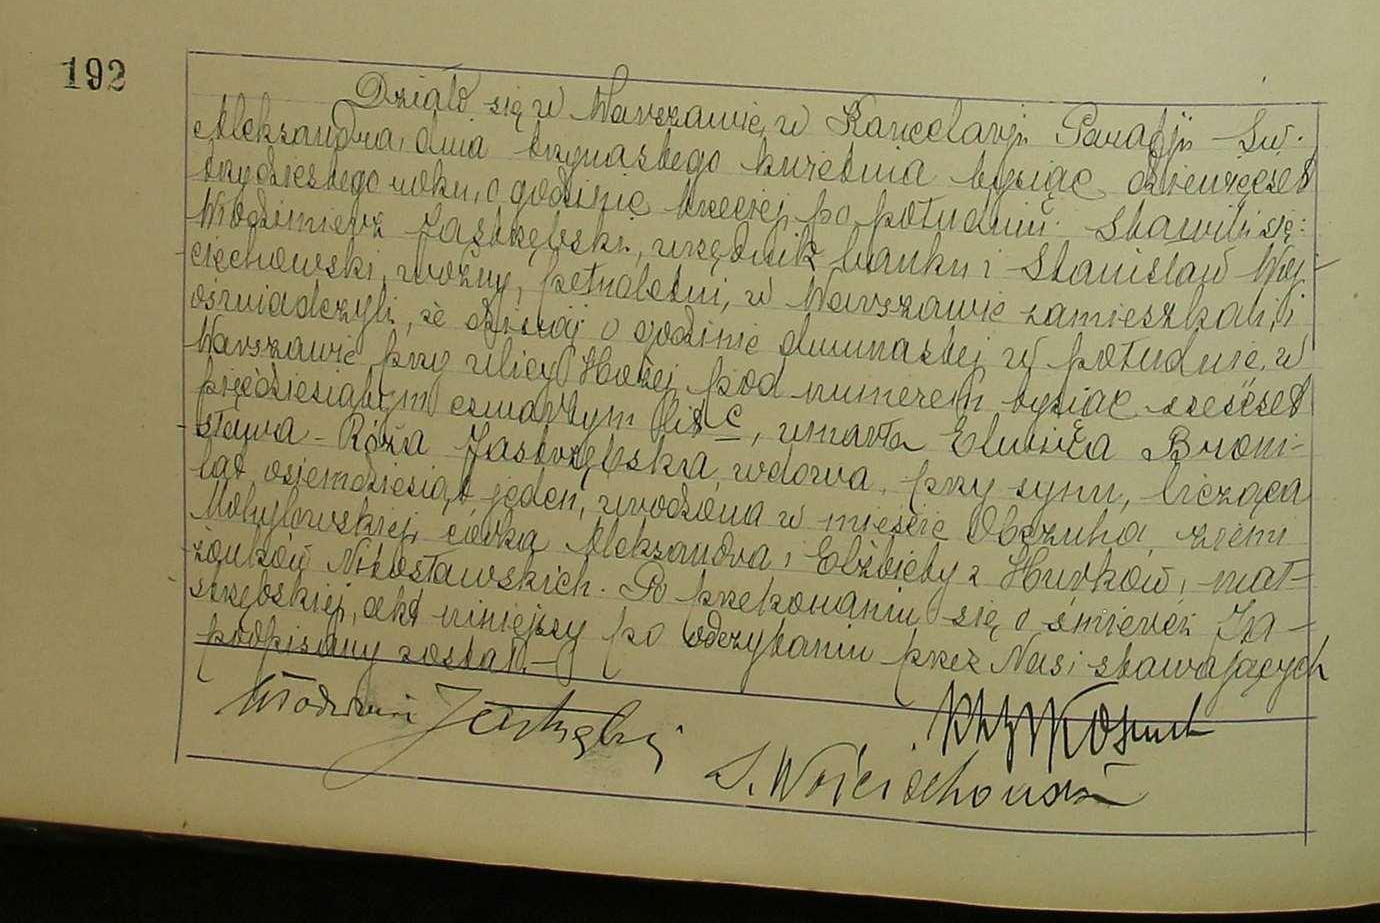 192
Działo się w Warszawie, w Kancelarji Parafji Św.
Aleksandra, dnia trzynastego kwietnia tysiąc dziewięćset
trzydziestego roku, o godzinie trzeciej po południu. Stawili się:
Włodzimierz Jastrzębski, urzędnik banku i Stanisław Woj-
ciechowski, woźny, pełnoletni, w Warszawie zamieszkali, i
oświadczyli, że dzisiaj o godzinie dwunastej w południe, w
Warszawie przy ulicy Hożej pod numerem tysiąc sześćset
pięćdziesiątym czwartym lit. C, umarła Elwira Broni-
sława-Róża Jastrzębska, wdowa, przy synu, licząca
lat osiemdziesiąt jeden, urodzona w mieście ziemi
Mohylowskiej, córka Aleksandra i Elżbiety z Hurków, mał-
żonków Nitosławskich. Po przekonaniu się o śmierci Ja-
strzębskiej, akt niniejszy po odczytaniu przez Nas i stawających
podpisany został.-
Włodzimierz Jastrzębski
S. Wojciechowski